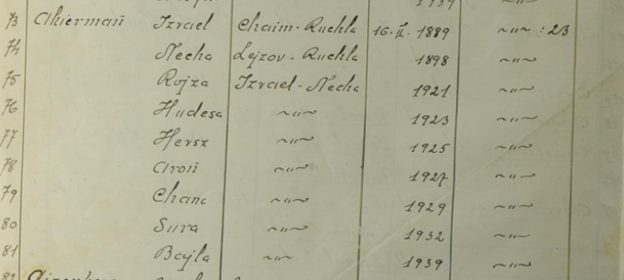 1939 -"-
73 Akierman Izrael Chaim-Ruchla 16.II.1889 -"- :23
74 Necha Lejzov-Ruchla 1898 -"-
75 Rojza Izrael-Necha 1921 -"-
76 Hudesa -"- 1923 -"-
77 Hersz -"- 1925 -"-
78 Aron -"- 1927 -"-
79 Chana -"- 1929 -"-
80 Sura -"- 1932 -"-
81 Bajla -"- 1939 -"-
82